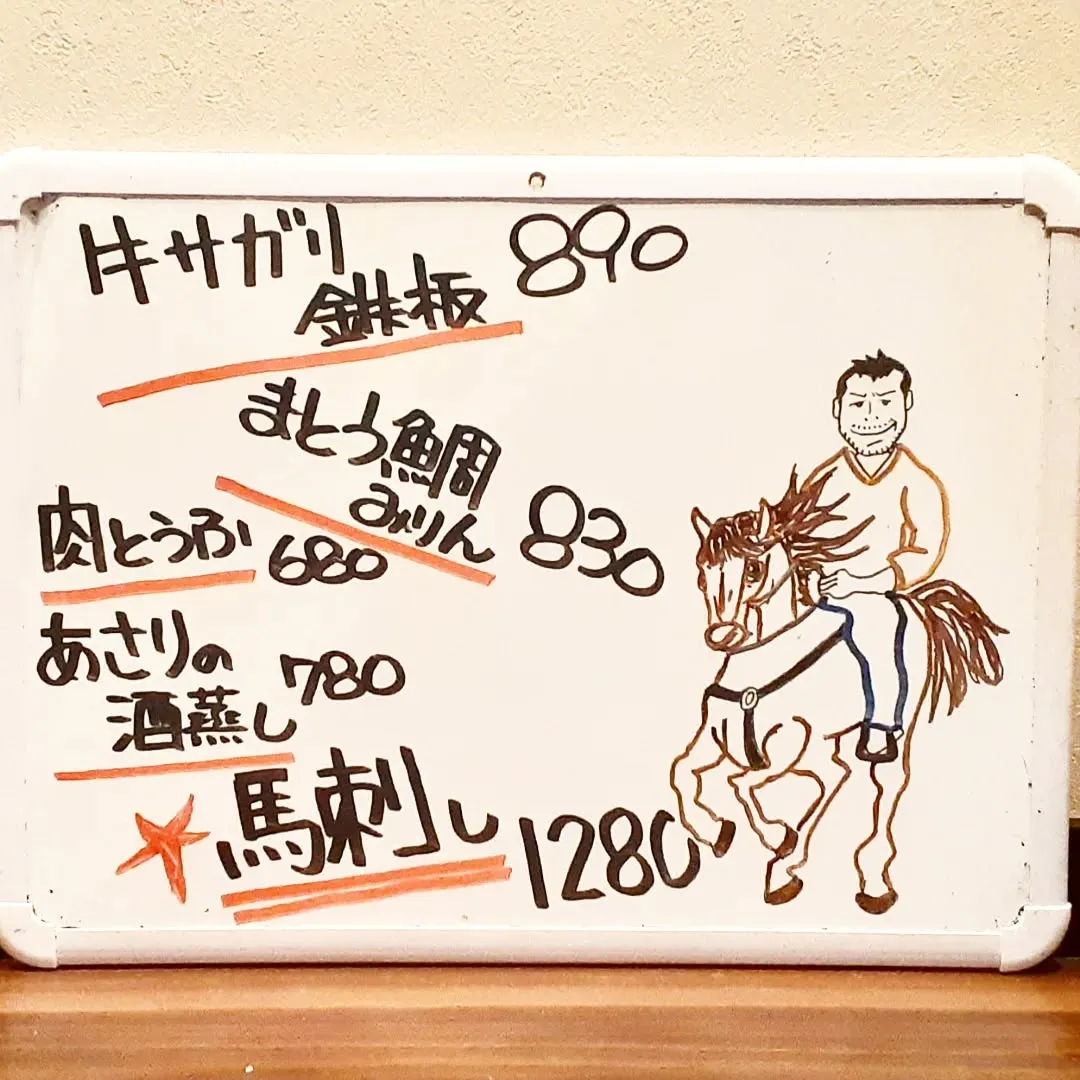 牛サガリ 890
鉄板
まとう鯛
みりん 830
肉とうふ 680
あさりの 780
酒蒸し
馬刺し 1280